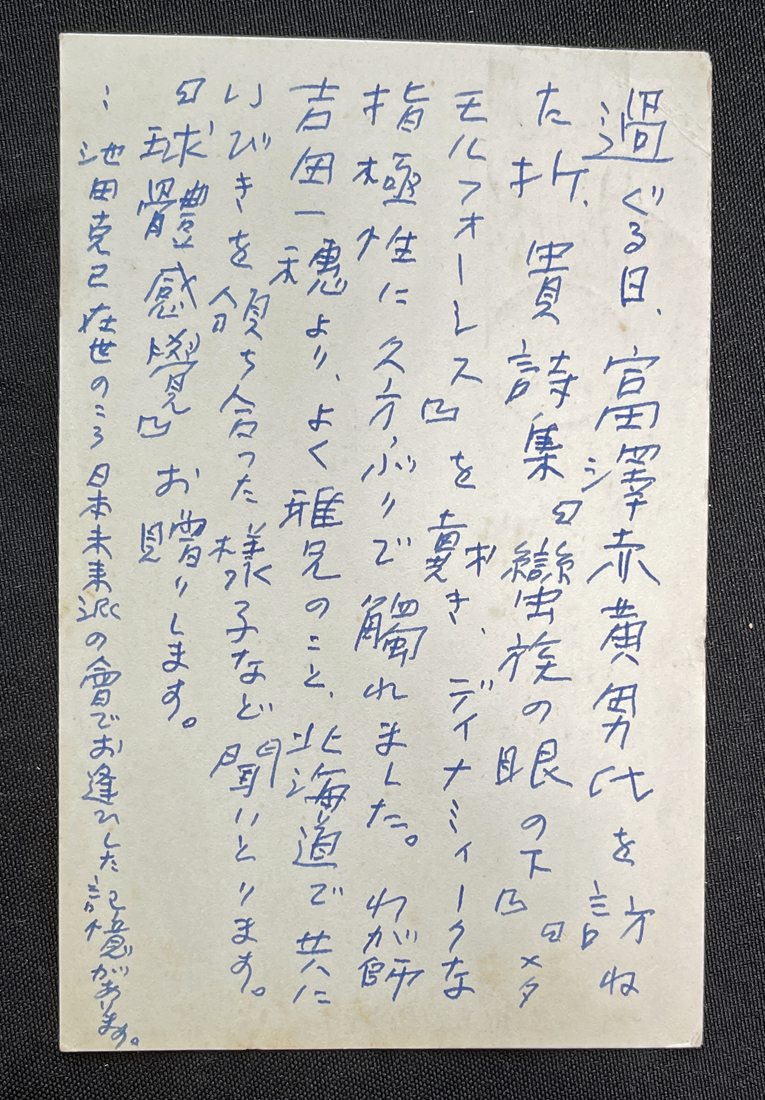 過ぐる日、富澤赤黄男氏を訪ね
た折、貴詩集『蠻族の眼の下』『メタ
モルフォーシス』を戴き、ディナミィークな
指極性に久方ぶりで觸れました。わが師
吉田一穂より、よく雅兄のこと、北海道で共に
いびきを頒ち合つた様子など聞いとります。
『球體感覺』お贈りします。
：池田克己在世のころ日本未来派の會でお逢ひした記憶があります。